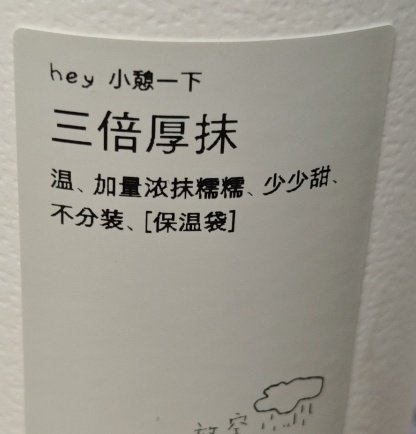 hey 小憩一下
三倍厚抹
温、加量浓抹糯糯、少少甜、
不分装、[保温袋]
放空